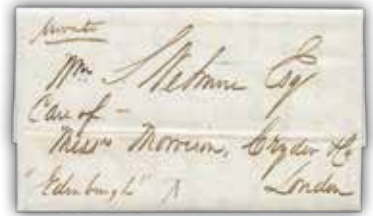 private
Wm S Wetmore Esq
Care of -
Messrs Morrison, Cryder & Co
"Edinburgh"
London